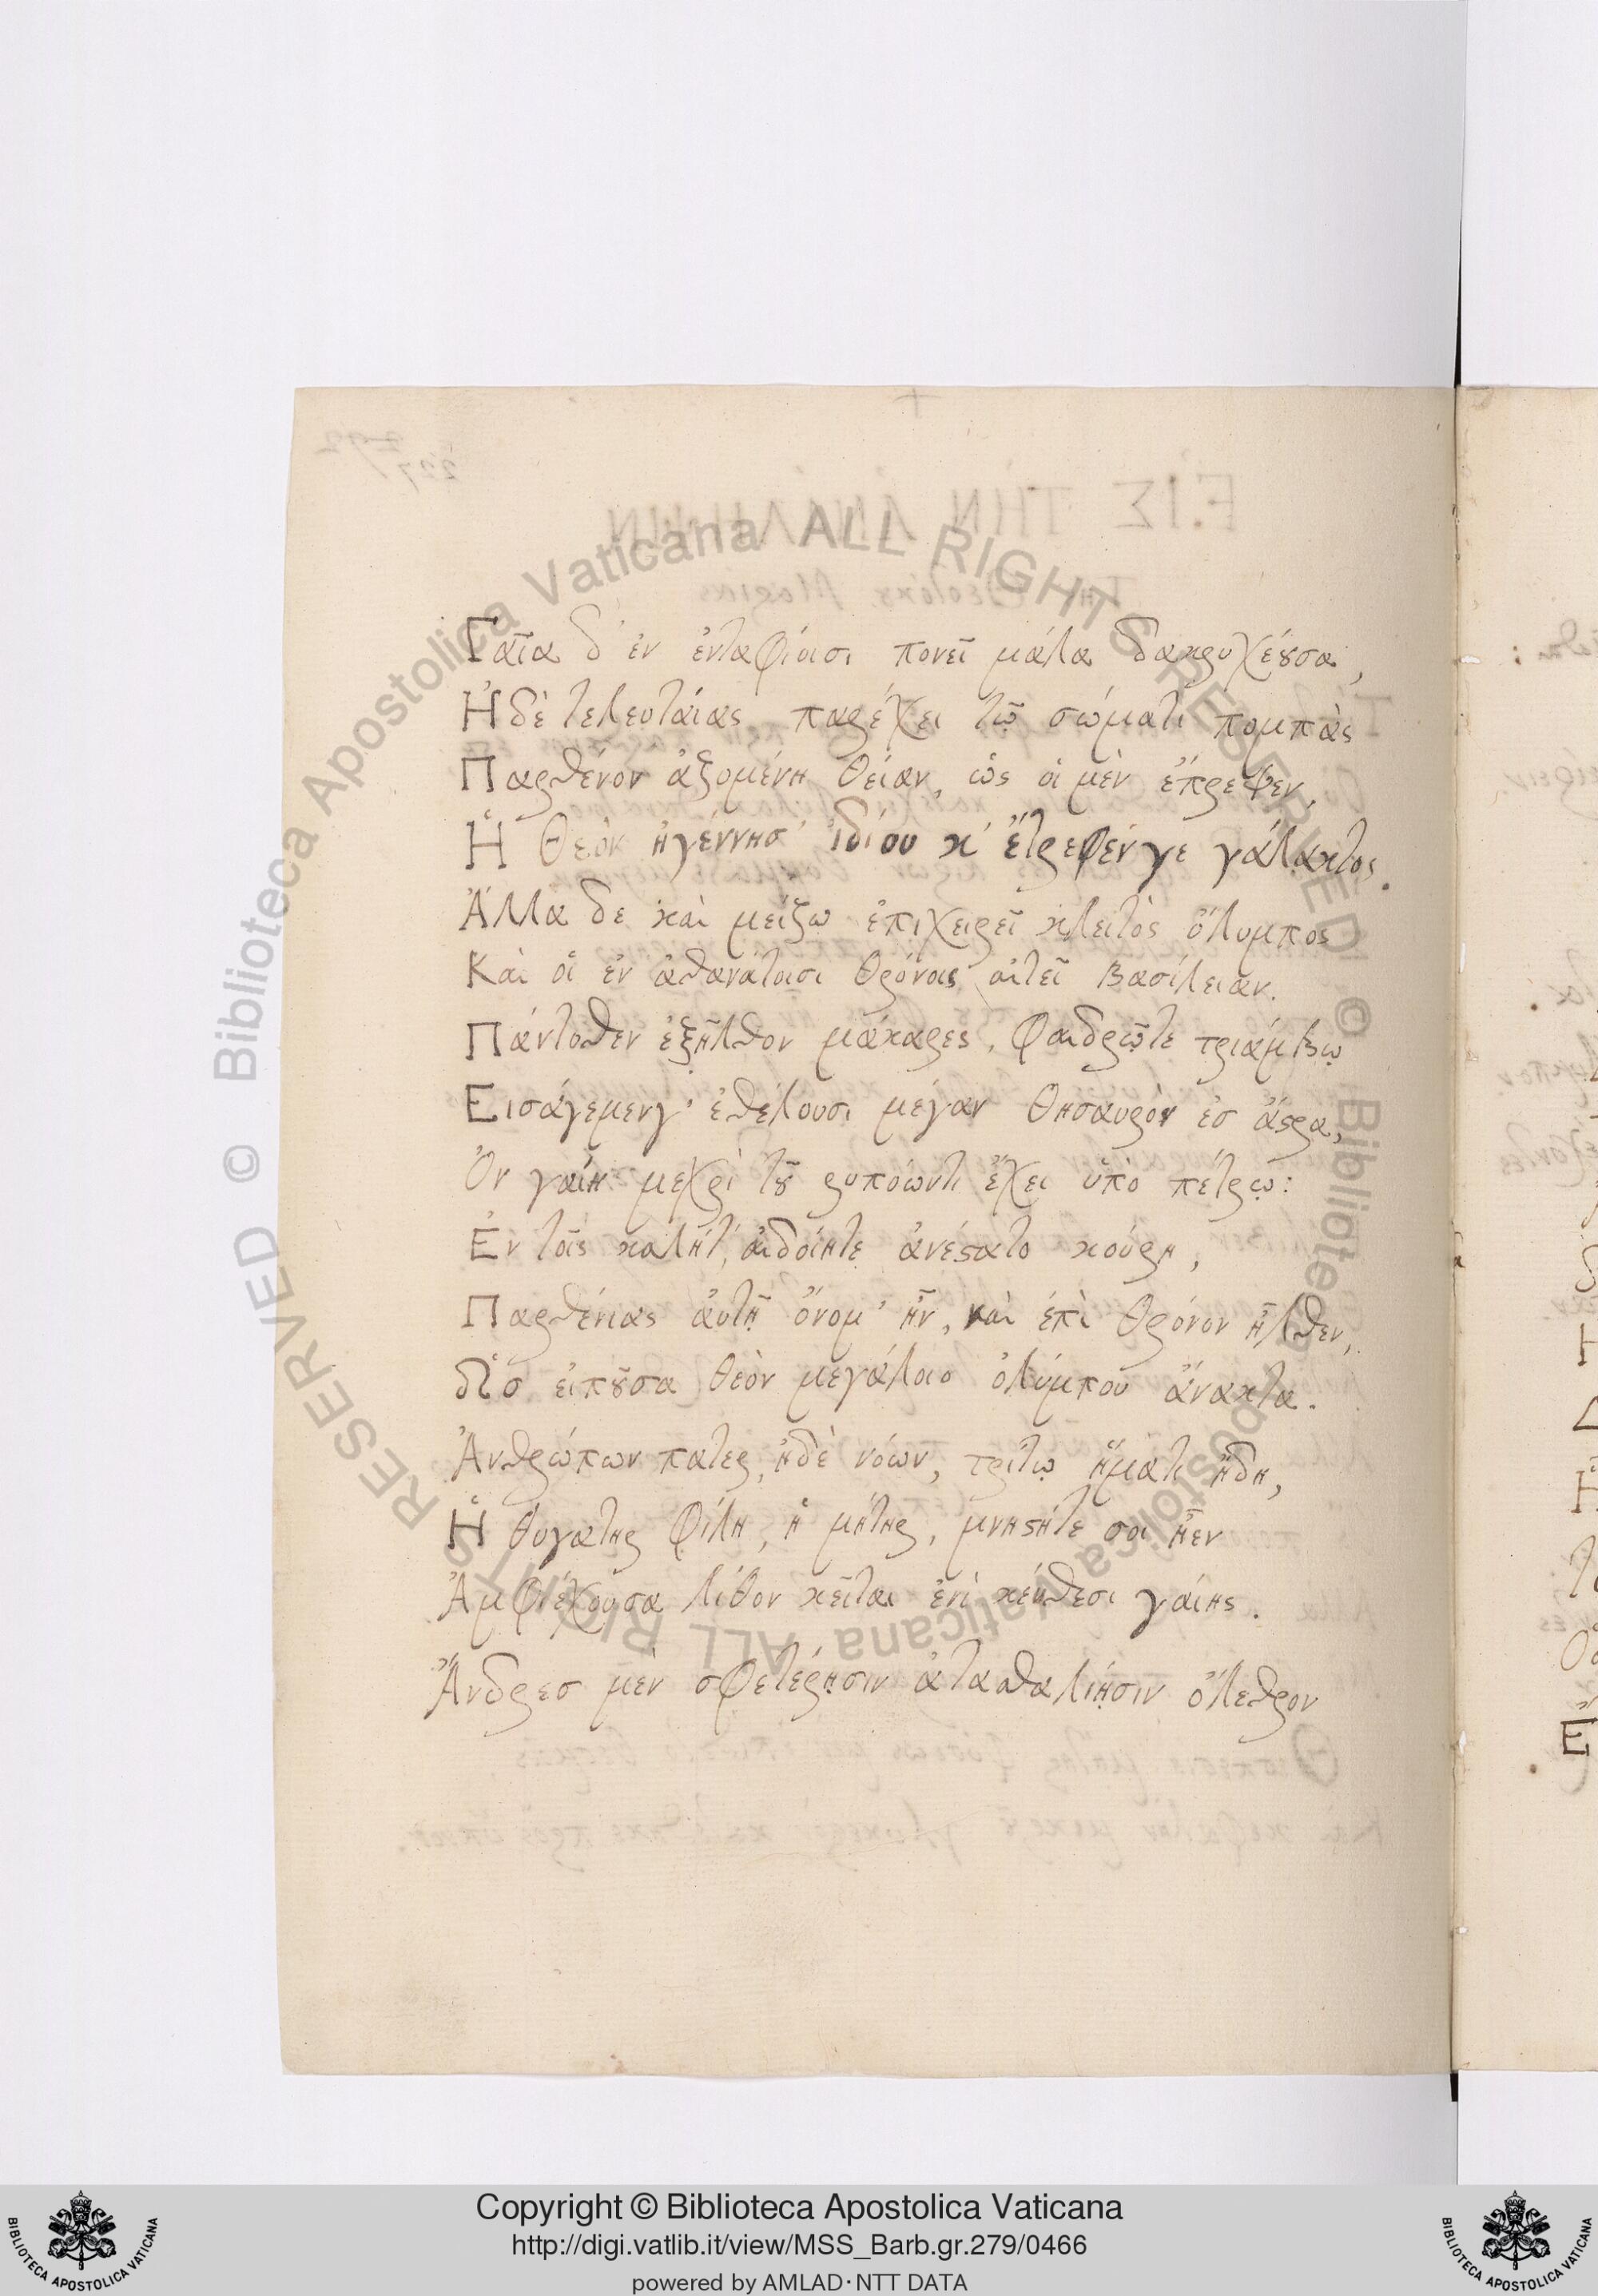 Γαῖα δ' ἐν ἐνταφίοισι πονεῖ μάλα δακρυχέουσα,
Ἠδὲ τελευταίας παρέχει τῷ σώματι πομπὰς
Παρθένον ἁζομένη θείαν, ὡς οἱ μὲν ἔπρεψεν,
Ἡ Θεὸν ἠγέννησ' ἰδίου κ' ἔτρεφέν γε γάλακτος.
Ἄλλα δε καὶ μείζω ἐπιχειρεῖ κλειτὸς ὄλυμπος
Καὶ οἱ ἐν ἀθανάτοισι θρόνοις αἰτεῖ βασίλειαν.
Πάντοθεν ἐξῆλθον μάκαρες, φαιδρῷτε τριάμβῳ
Εισάγεμενγ' ἐθέλουσι μέγαν θησαυρὸν ἐσ ἄστρα,
Ὃν γαίη μεχρὶ τοῦ ῥυπόωντι ἔχει ὑπὸ πέτρῳ:
Ἐν τοῖς καλήτ' αἰδοίητε ἀνέστατο κούρη,
Παρθένιας αὐτῇ ὄνομ' ἦν, καὶ ἐπὶ θρόνον ἦλθεν,
εἰποῦσα θεὸν μεγάλοιο ὀλύμπου ἄνακτα.
Ἀνθρώπων πατερ, ἠδὲ νόων, τρίτῳ ἤματι ἤδη,
Ἡ θυγατηρ φίλη, ἡ μήτηρ, μνηστήτε σοι ἦεν
Ἀμφιέχουσα λίθον κεῖται ἐνὶ κεύθεσι γαίης.
Ἄνδρεσ μὲν σφετέρῃσιν ἀταθαλίῃσιν ὄλεθρον
Copyright © Biblioteca Apostolica Vaticana
http://digi.vatlib.it/view/MSS_Barb.gr.279/0466
powered by AMLAD·NTT DATA